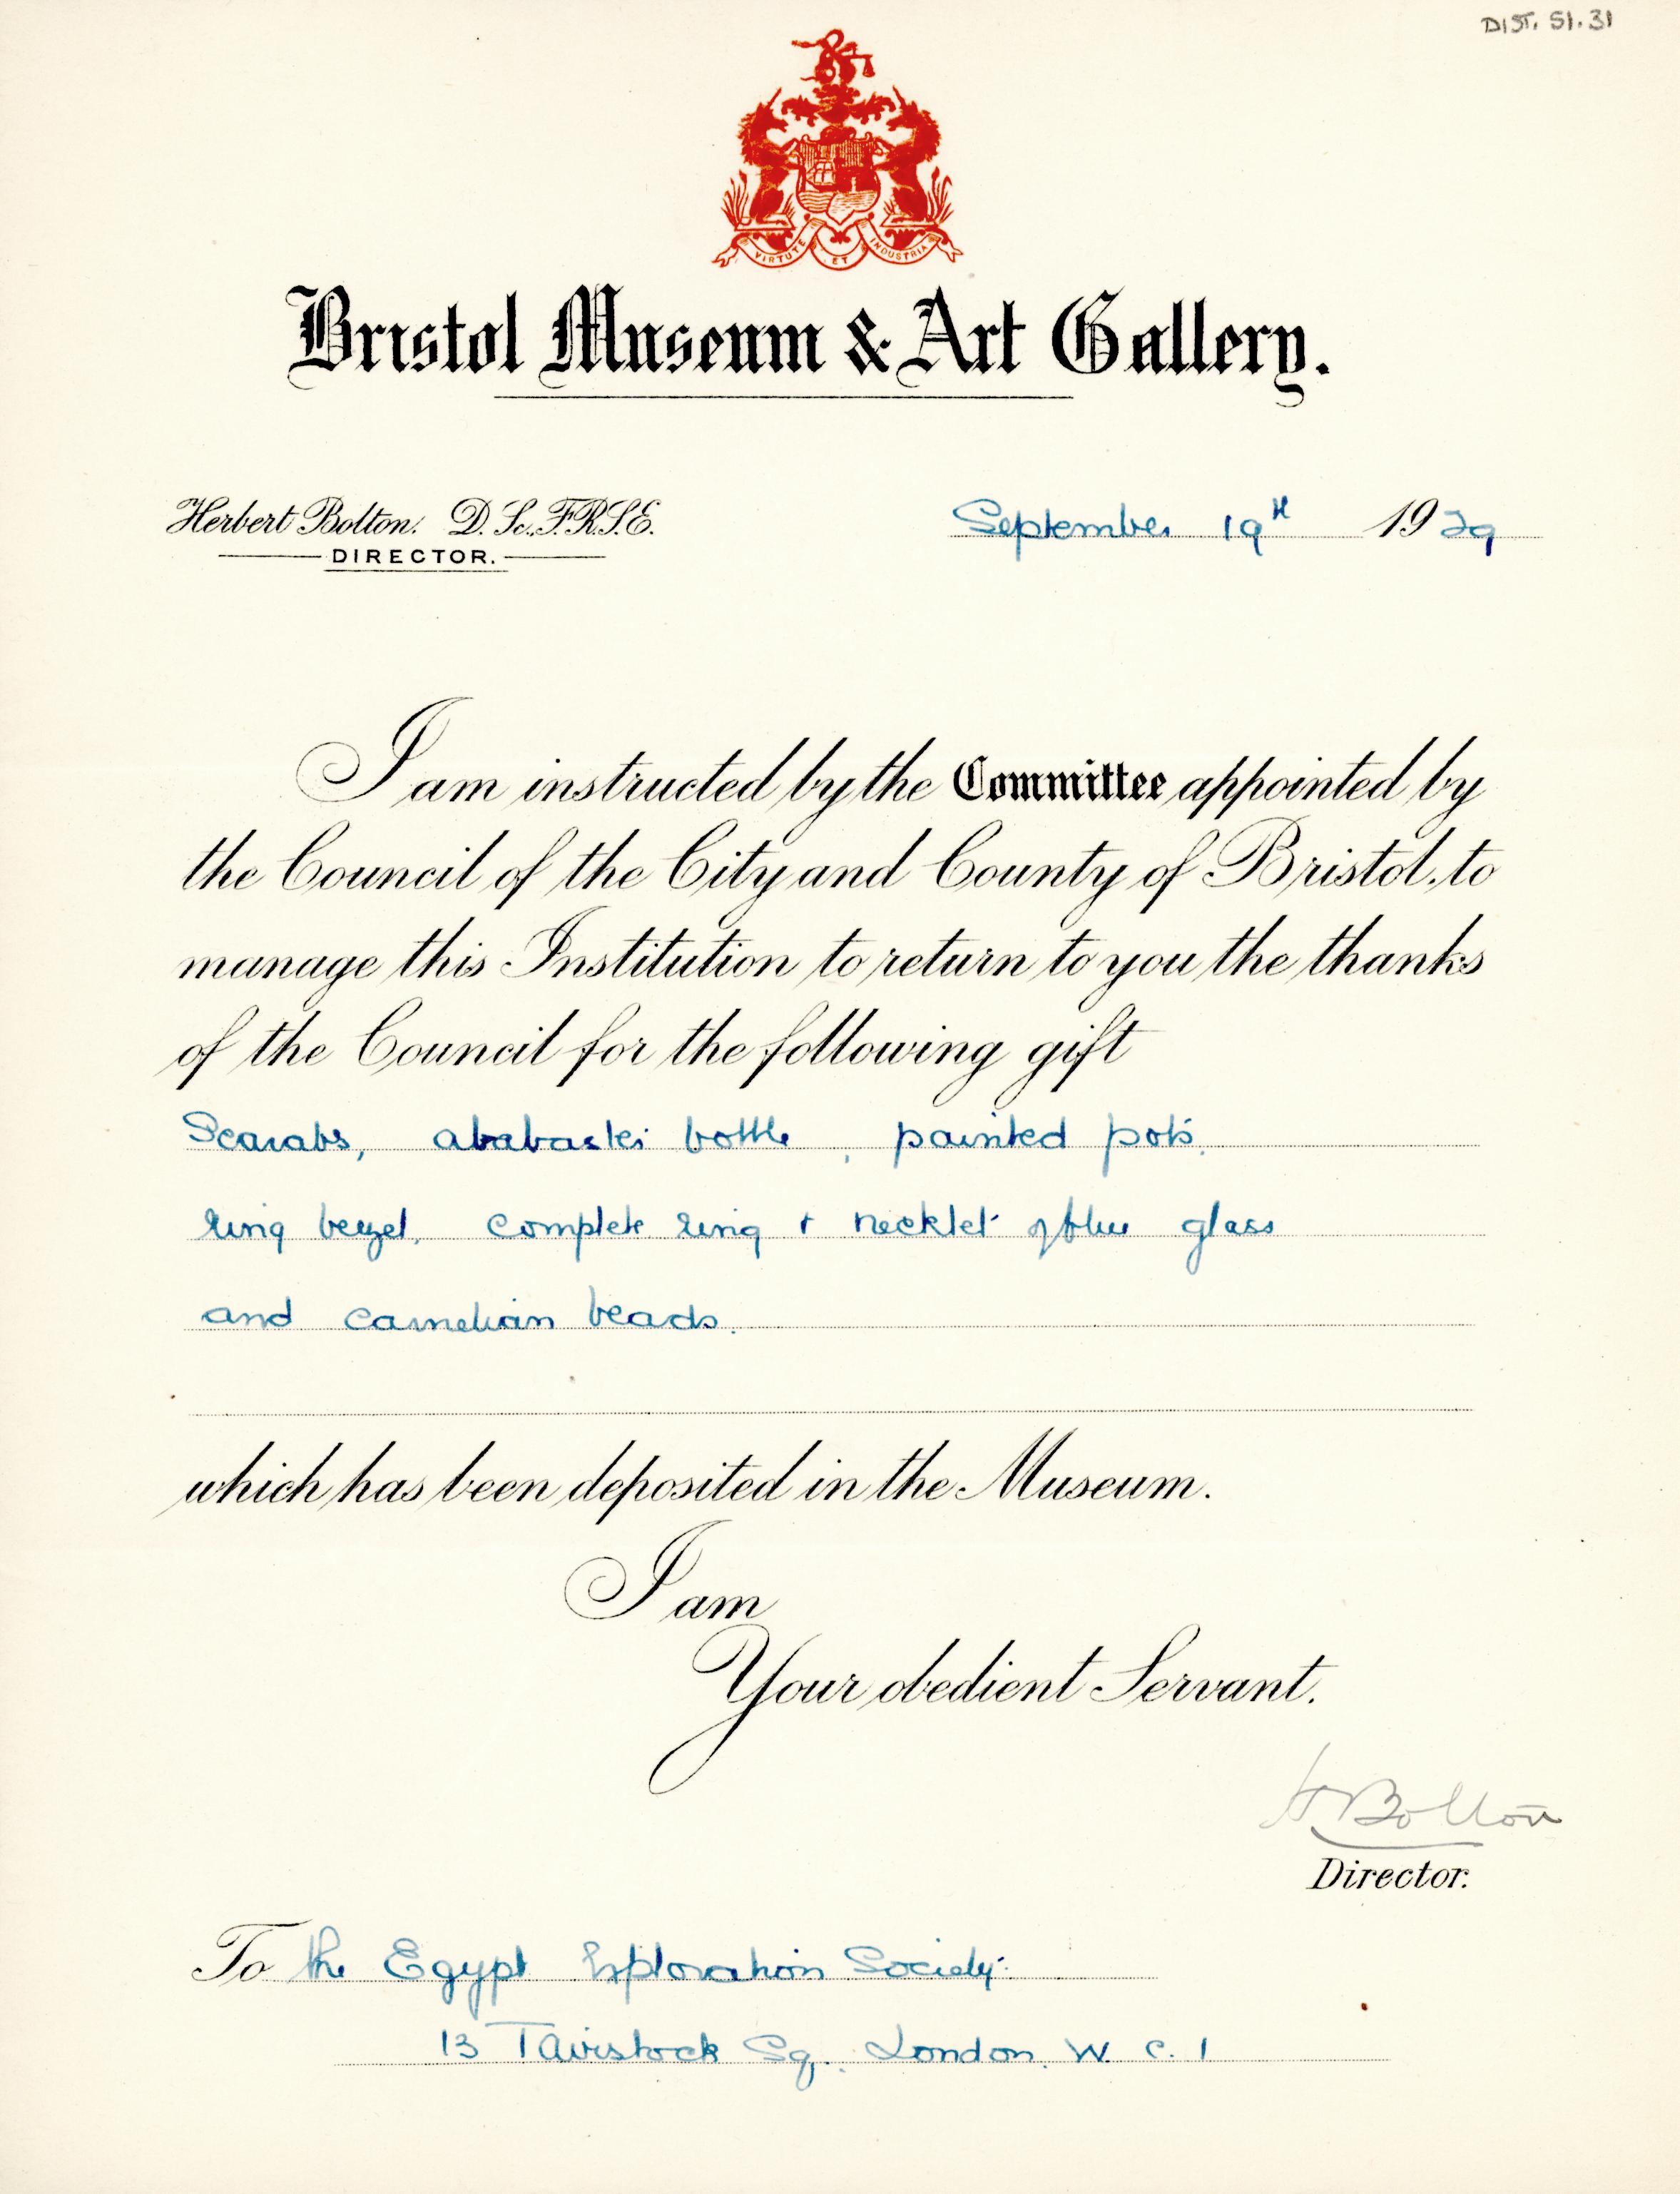 DIST. 51.31
VIRTUTE ET INDUSTRIA
Bristol Museum & Art Gallery.
Herbert Bolton. D. Sc., F.R.S.E.
DIRECTOR.
September 19th 1929
I am instructed by the Committee appointed by
the Council of the City and County of Bristol, to
manage this Institution to return to you the thanks
of the Council for the following gift
Scarabs, alabaster bottle, painted pots,
ring bezel, complete ring + necklet of blue glass
and carnelian beads.
which has been deposited in the Museum.
I am
Your obedient Servant.
H Bolton
Director.
To the Egypt Exploration Society.
13 Tavistock Sq. London. W. C. 1